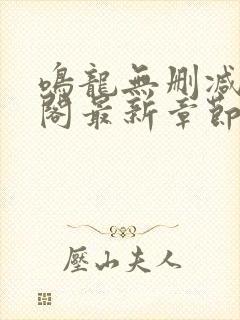 鳴龍無刪減
閣最新章節
壓山夫人